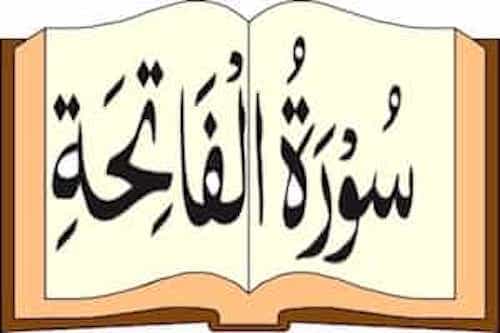 سُوْرَةُ الْفَاتِحَةِ